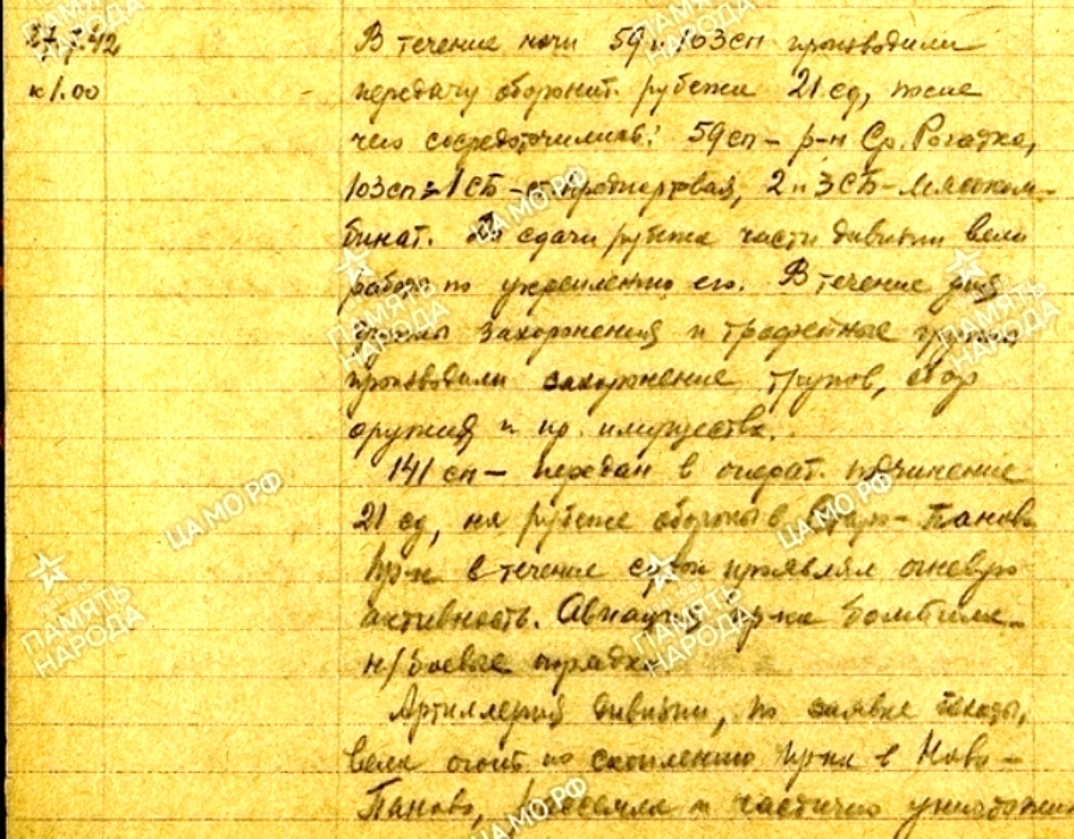 27.7.42 В течение ночи 59 и 103сп производили
к 1.00 передачу оборонит. рубежа 21 сд, после
чего сосредоточились: 59сп – р-н Ср. Рогатка,
103сп – 1СБ – 2 и 3 СБ – Мясоком-
бинат. сдачи рубежа части дивизии вели
работы по укреплению его. В течение дня
группы захоронения и трофейные группы
производили захоронение трупов, сбор
оружия и др. имущества.
141 сп – передан в операт. подчинение
21 сд, на рубеже обороны в Старо-Паново
Пр-к в течение суток проявлял огневую
активность. Авиация пр-ка бомбила
н/боевые порядки.
Артиллерия дивизии, по заявке пехоты,
вела огонь по скоплению пр-ка в Ново-
Паново, рассеяла и частично уничтожила
ПАМЯТЬ НАРОДА
ЦАМО.РФ